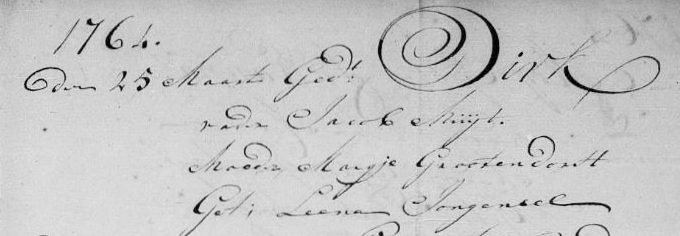 1764.
den 25 Maart Gedt: Dirk
vader Jacob Kuijt.
Moeder Marije Grootendorst
Get: Leena Jongeneel